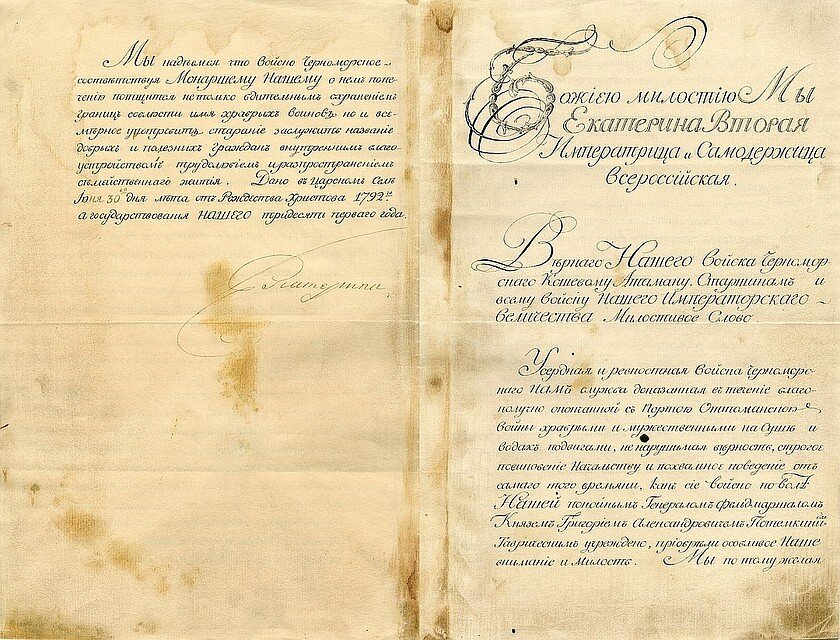 Мы надѣемся что войско Черноморское
соотвѣтствуя Монаршему Нашему о немъ попе-
ченію потщится не только бдительнымъ охраненіемъ
границъ соблюсти имя храбрыхъ воиновъ но и все-
мѣрное употребитъ стараніе заслужить названіе
добрыхъ и полезныхъ гражданъ внутреннимъ благо-
устройствомъ трудолюбіемъ и распространеніемъ
семѣйственнаго житія. Дано въ Царскомъ Селѣ
Іюня 30го дня лѣта отъ Рождества Христова 1792го
а государствованія НАШЕГО тридесять перваго года.
Екатерина
Божіею милостію Мы
Екатерина Вторая
Императрица и Самодержица
Всероссійская.
Вѣрнаго Нашего войска Черномор-
скаго Кошевому Атаману, Старшинамъ и
всему войску Нашего Императорскаго
величества Милостивое Слово.
Усердная и ревностная войска Черноморс-
каго Намъ служба доказанная въ теченіе благо-
получно оконченной съ Портою Оттоманскою
войны храбрыми и мужественными на Сушѣ и
водахъ подвигами, не нарушимая вѣрность, строгое
повиновеніе Начальству и похвальное поведеніе отъ
самаго того времяни, какъ сіе войско по волѣ
Нашей покойнымъ Генераломъ Фельдмаршаломъ
Княземъ Григоріемъ Александровичемъ Потемкинымъ
Таврическимъ учреждено, пріобрѣли особливое Наше
вниманіе и милость. Мы по тому желая